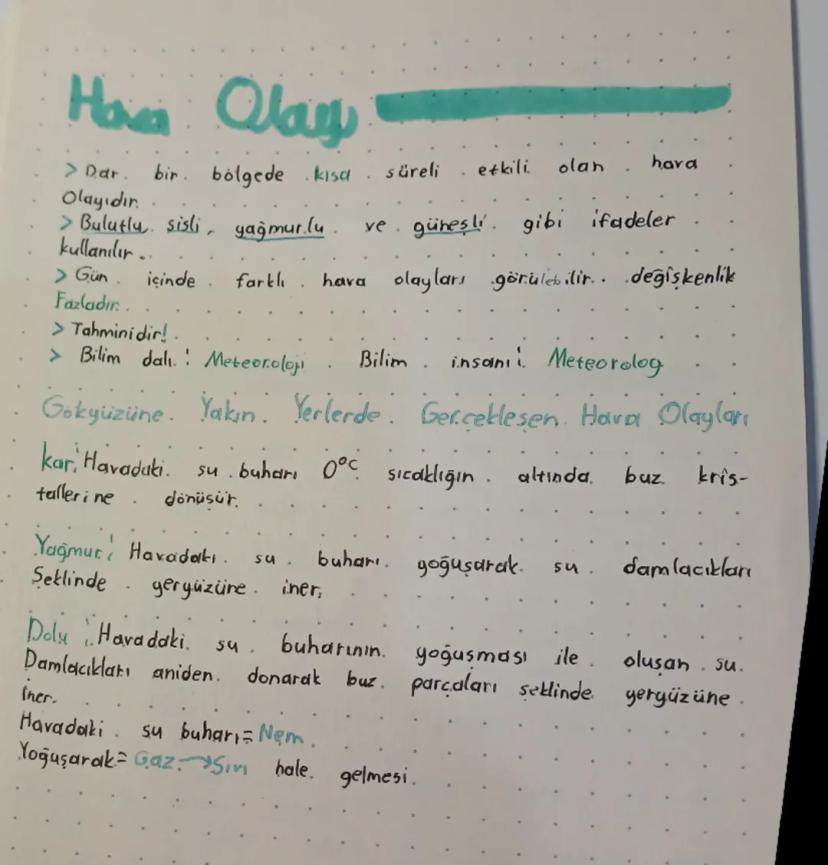 Hava Olayı
> Dar bir bölgede kısa süreli etkili olan hava
Olayıdır.
> Bulutlu, sisli, yağmurlu ve güneşli gibi ifadeler
kullanılır.
> Gün içinde farklı hava olayları görülebilir. değişkenlik
Fazladır.
> Tahminidir!
> Bilim dalı: Meteoroloji Bilim insanı: Meteorolog
Gökyüzüne Yakın Yerlerde Gerçekleşen Hava Olayları
kar: Havadaki su buharı 0°C sıcaklığın altında buz kris-
tallerine dönüşür.
Yağmur: Havadakı su buharı yoğuşarak su damlacıkları
Şeklinde yeryüzüne iner.
Dolu: Havadaki su buharının yoğuşması ile oluşan su
Damlacıkları aniden donarak buz parçaları şeklinde yeryüzüne
iner.
Havadaki su buharı = Nem
Yoğuşarak = Gaz → Sıvı hale gelmesi.